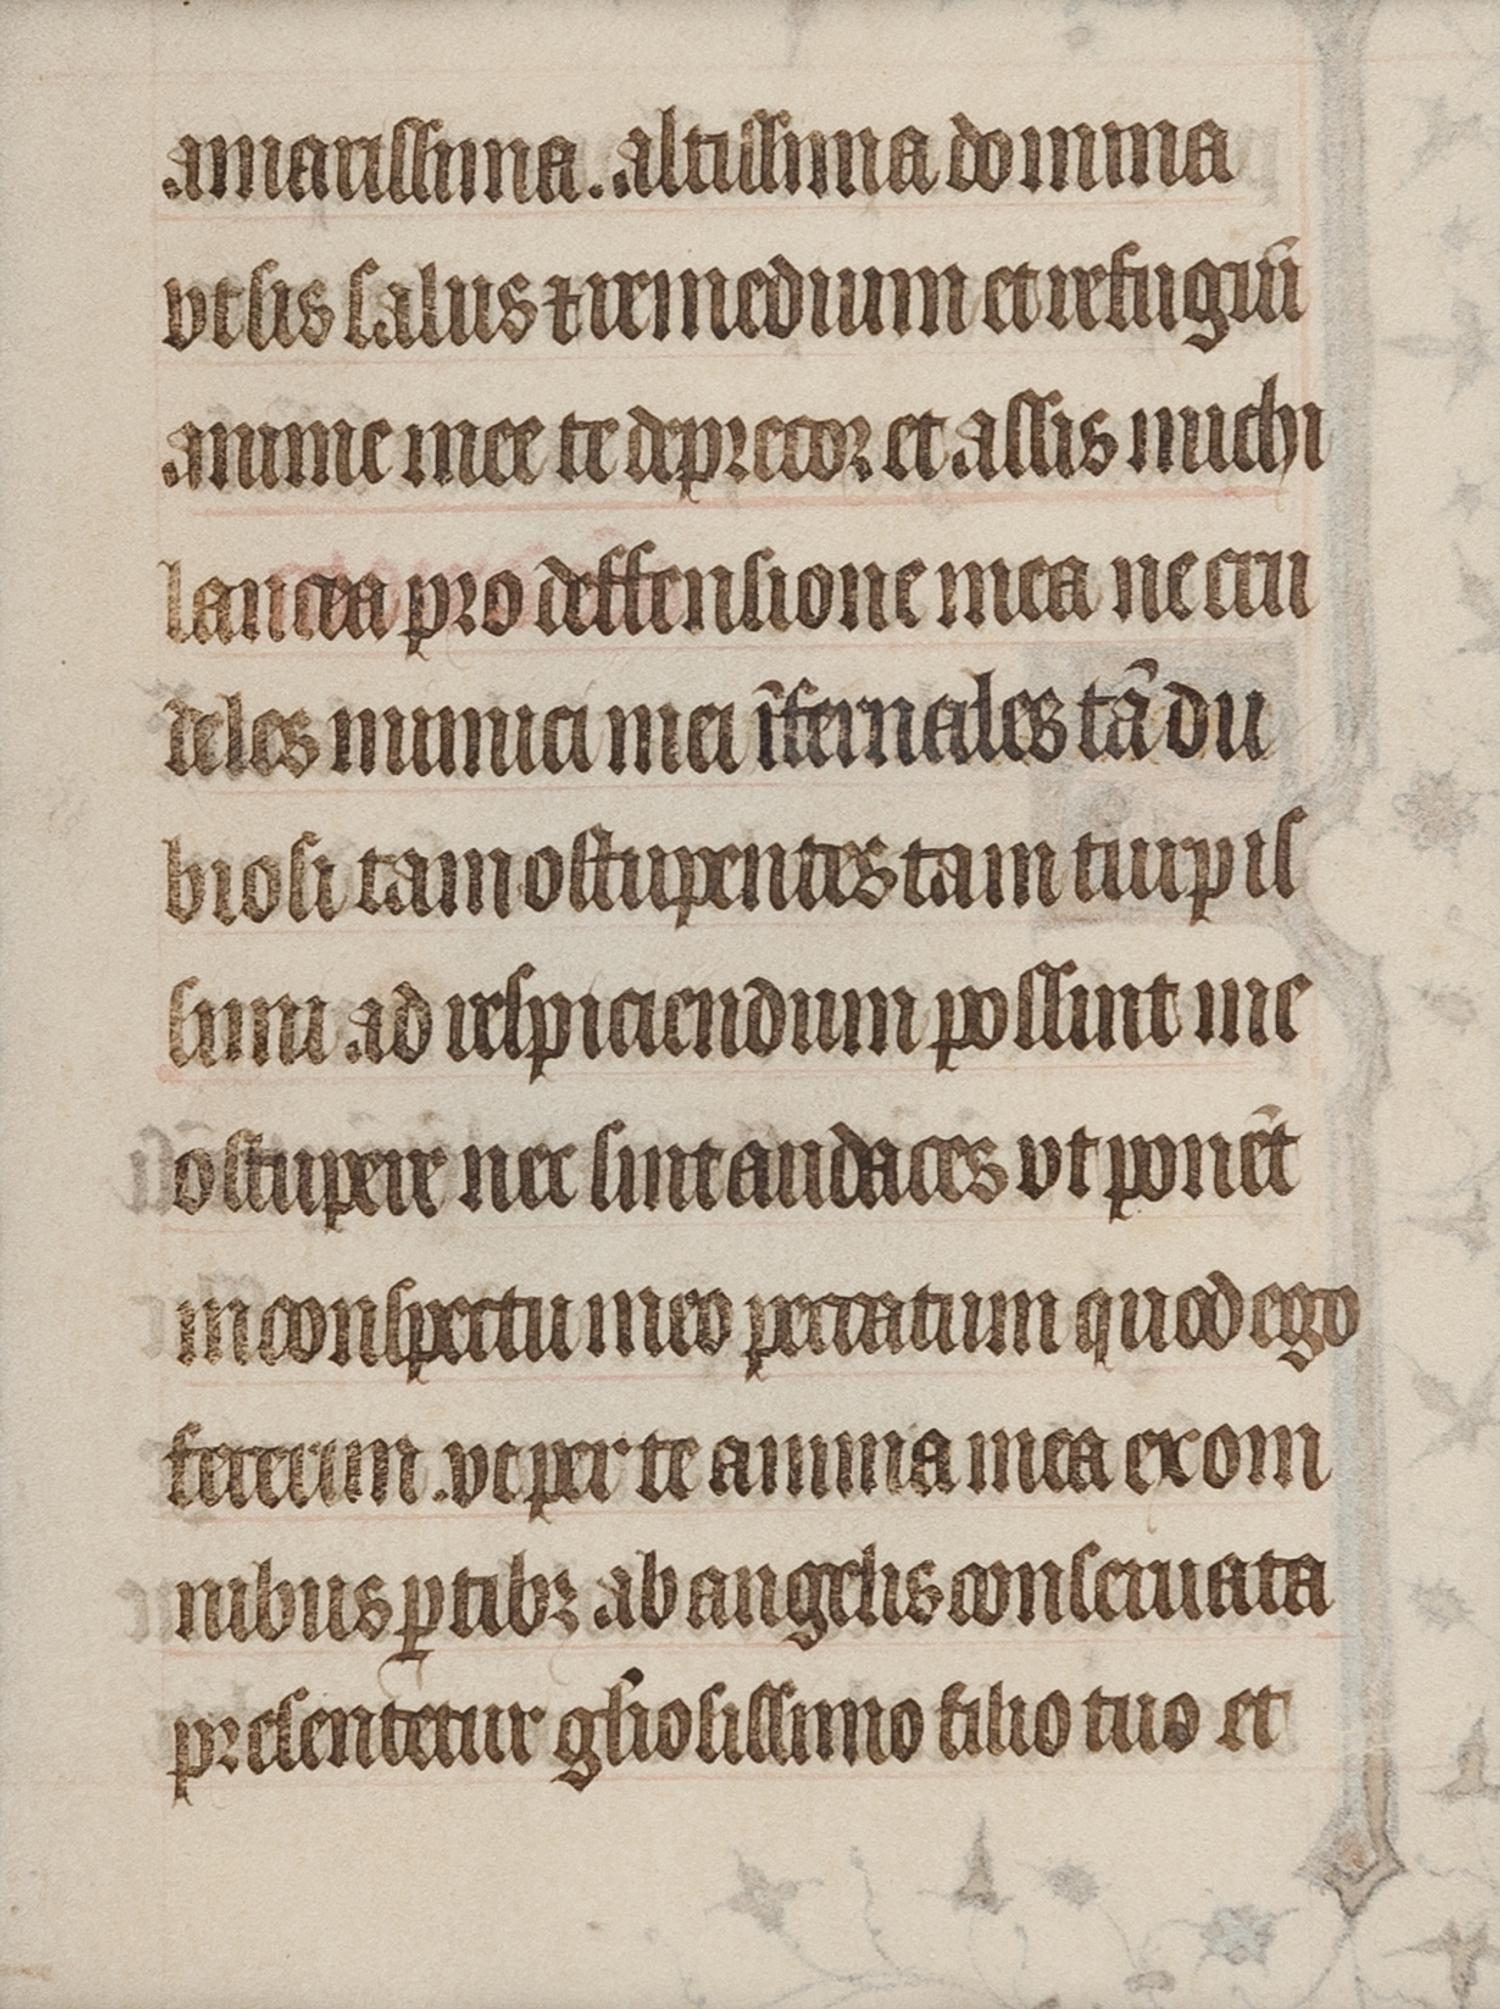 amarissima. altissima domina
vt sis salus ⁊ remedium et refugiũ
anime mee te deprecor et assis michi
lancea pro deffensione mea ne cru
deles inimici mei ĩfernales tã du
biosi tam ostupentes tam turpis
simi ad respiciendum possint me
ostupere nec sint audaces vt ponẽt
in conspectu meo peccatum quod ego
fecerim. vt per te anima mea ex om
nibus ꝑtibꝫ ab angelis conseruata
presentetur gl̃iosissimo filio tuo et